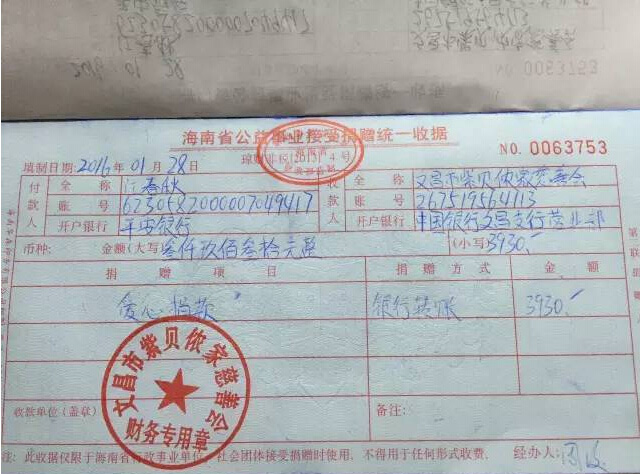 2016 01 28
NO. 0063753
海南省公益事业接受捐赠统一收据
NO. 0063753
填制日期:2016年01月28日
琼财非税(2015) 4号
付款人 全称
账号 6230582000007049417
开户银行 平安银行
收款人 全称 文昌市紫贝侬家慈善会
账号 267519564113
开户银行 中国银行文昌支行营业部
币种: 金额(大写)叁仟玖佰叁拾元整 (小写)3930.-
捐赠项目 捐赠方式 金额
爱心捐款 银行转账 3930.-
文昌市紫贝侬家慈善会
财务专用章
收款单位(盖章) 备注:
注:此收据仅限于海南省行政事业单位、社会团体接受捐赠时使用,不得用于任何形式收费。 经办人: